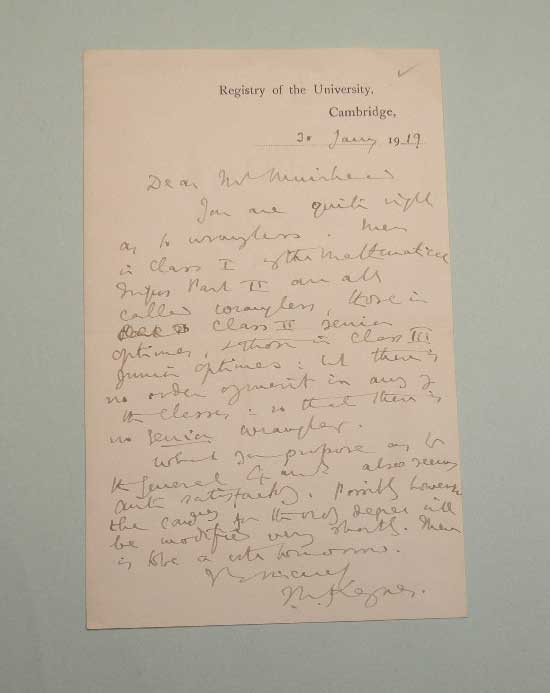 Registry of the University,
Cambridge,
30 Jany 1919
Dear Mr Muirhead
You are quite right
as to wranglers. Men
in Class I of the Mathematical
Tripos Part II are all
called wranglers, those in
Class II senior
optimes, & those in Class III
junior optimes: but there is
no order of merit in any of
the classes: so that there is
no senior wrangler.
What you propose as to
the General & also seems
quite satisfactory. Possibly however
the for the ord degree will
be modified very shortly. There
is to be a vote tomorrow.
Yrs sincerely
Keynes.